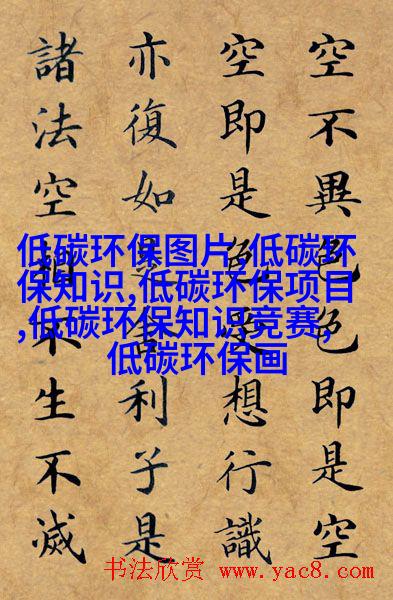 空不異色色即是空
空即是色受想行識
亦復如是舍利子是
諸法空相不生不滅
低碳环保图片,低碳环
保知识,低碳环保项目
,低碳环保知识竞赛,
低碳环保画
书法欣赏 www.yac8.com